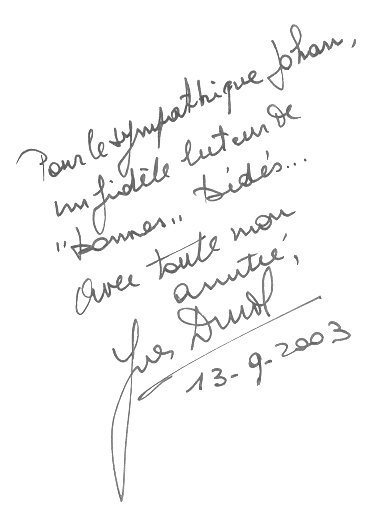 Pour le sympathique Johan,
un fidèle lecteur de
"bonnes" bédés...
Avec toute mon
amitié,
Yves Duval
13-9-2003